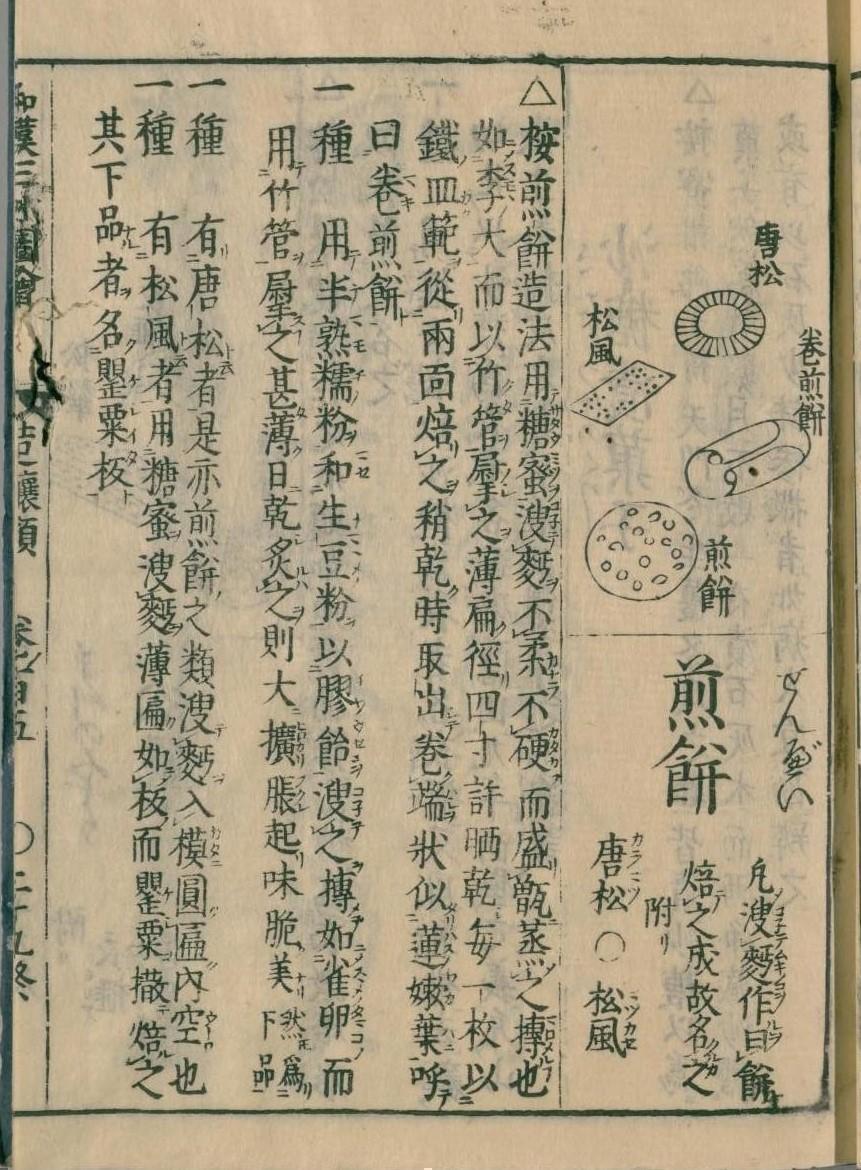 唐松
卷煎餅
松風
煎餅
せんべい
煎餅
凢溲麪作曰餅
焙之成故名之
附リ
唐松 ○ 松風
△桉煎餅造法用糖蜜溲麪不柔不硬而盛甑蒸之摶也
如李大而以竹管㞠之薄扁徑四寸許晒乾每一枚以
鐵皿範從兩靣焙之稍乾時取出卷端狀似蓮嫩葉呼
曰卷煎餅
一種 用半熟糯粉和生豆粉以膠飴溲之摶如雀卵而
用竹管㞠之甚薄日乾炙之則大擴脹起味脆美然爲下品
一種 有唐松者是亦煎餅之類溲麪入模圓匾內空也
一種 有松風者用糖蜜溲麪薄匾如板而罌粟撒焙之
其下品者名罌粟板